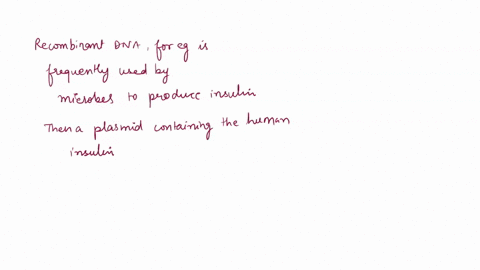 Recombinant DNA, for eg is
frequently used by
microbes to produce insulin
Then a plasmid containing the human
insulin